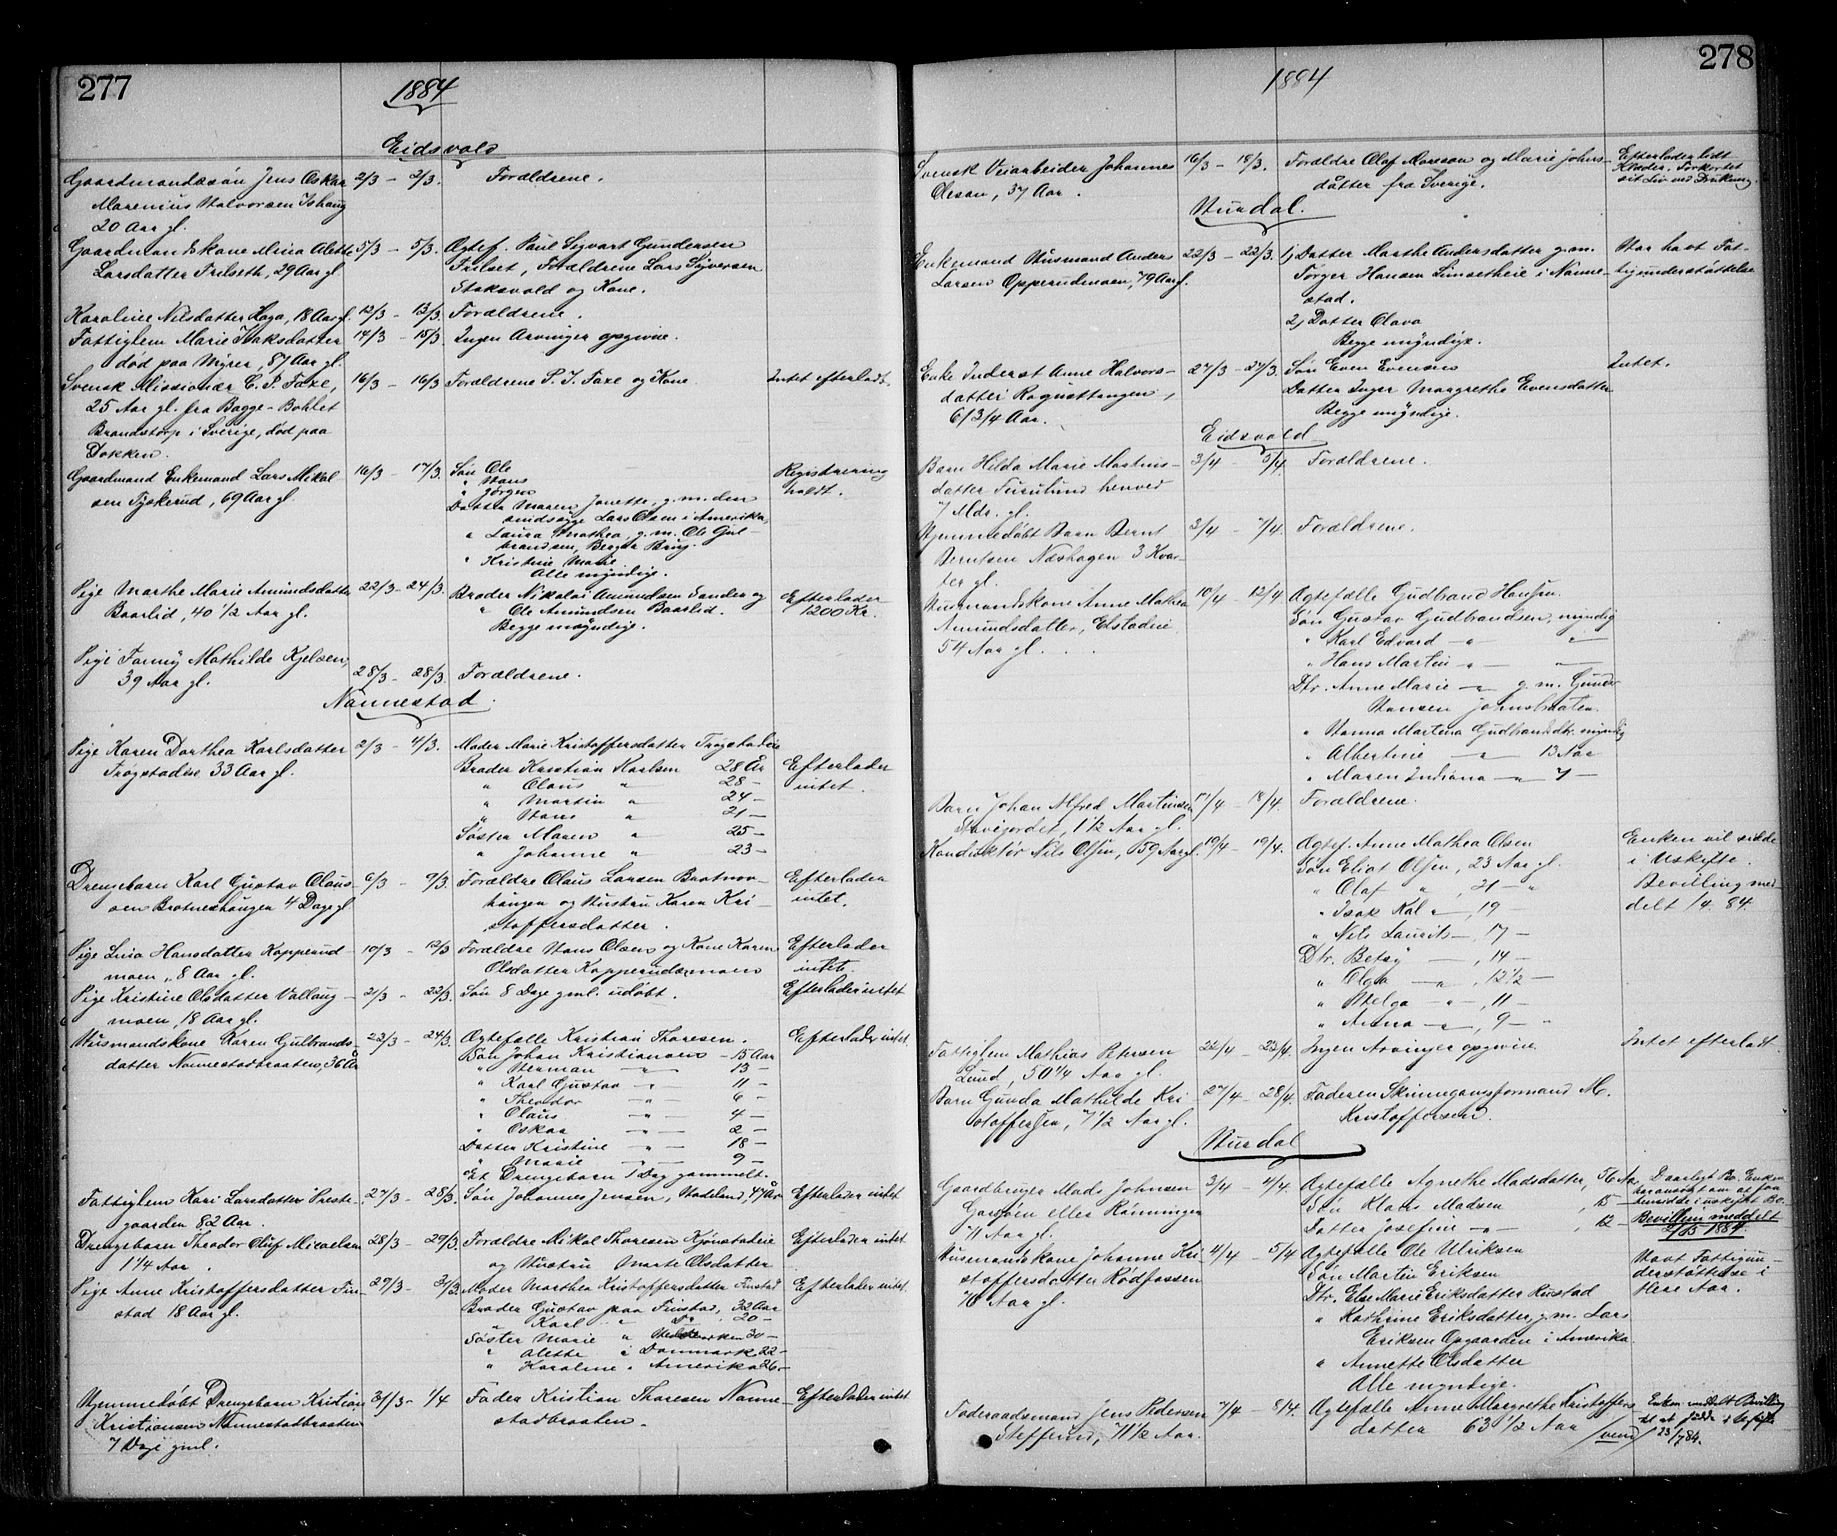 277
1884
Eidsvold
Gaardmandssøn Jens Oskar 2/3 – 2/3. Forældrene.
Marenius Halvorsen Ishaug
20 Aar gl.
Gaardmandskone Mina Alette 5/3 – 5/3. Ægtef. Paul Sigvart Gundersen
Larsdatter Trilseth, 29 Aar gl. Trilset, Forældrene Lars Sigversen
Stoksvold og Kone.
Karoline Nilsdatter Haga, 18 Aar gl. 12/3 – 13/3. Forældrene.
Fattiglem Marie Isaksdatter 14/3 – 15/3. Ingen Arvinger opgivne.
død paa Myrer, 87 Aar gl.
Svensk Missionær C. P. Faxe, 16/3 – 16/3 Forældrene P. J. Faxe og Kone Intet efterladt.
25 Aar gl. fra Bagge-Bohlet
Brandstorp i Sverige, død paa
Dokken.
Gaardmand Enkemand Lars Mikal 16/3 – 17/3. Søn Ole Registrering
sen Tyskerud, 69 Aar gl. " Hans holdt.
" Jørgen
Datter Maren Janette, g. m. den
sindssyge Lars Olsen i Amerika,
" Laura Mathea, g. m. Ole Gul-
brandsen, Berger Brug.
" Kristine Marie
Alle myndige.
Pige Marthe Marie Amundsdatter 22/3 – 24/3. Broder Nikolai Amundsen Sander og Efterlader
Baarlid, 40 1/2 Aar gl. " Ole Amundsen Baarlid. 1200 Kr.
Begge myndige.
Pige Fanny Mathilde Kjelsen,
39 Aar gl. 28/3 – 28/3. Forældrene.
Nannestad
Pige Karen Dorthea Karlsdatter 2/3 – 4/3. Moder Marie Kristoffersdatter Trøgstadeie
Trøgstadeie 33 Aar gl. Broder Kristian Karlsen 28 År Efterlader
" Olaus " 28 – intet.
" Martin " 24 –
" Hans " 21 –
Søster Maren " 25 –
" Johanne " 23 –
Drengebarn Karl Gustav Olaus- 6/3 – 9/3. Forældre Olaus Larsen Brotnov- Efterlader
sen Brotneshaugen 4 Dage gl haugen og Hustru Karen Kri- intet.
stoffersdatter.
Pige Lina Hansdatter Kopperud- 10/3 – 12/3 Forældre Hans Olsen og Kone Karen Efterlader
moen, 8 Aar gl. Olsdatter Kopperudsmoen intet.
Pige Kristine Olsdatter Vallaug- 21/3 – 22/3. Søn 8 Dage gml. udøbt. Efterlader intet
moen, 18 Aar gl.
Husmandskone Karen Gulbrands- 23/3 – 24/3. Ægtefælle Kristian Thoresen. Efterlader intet
datter Nannestadbraaten, 36 År Søn Johan Kristiansen – 15 Aar
" Herman – " – 13 –
" Karl Gustav – " – 11 –
" Theodor – " – 6 –
" Olaus – " – 4 –
" Oskar – " – 2 –
Datter Kristine – " – 18 –
" Marie 9 –
Et Drengebarn 1 Dag gammelt.
Fattiglem Kari Larsdatter Preste- 27/3 – 28/3. Søn Johannes Jensen, Hadeland, 47 År Efterlader intet
gaarden 82 Aar.
Drengebarn Theodor Oluf Micaelsen 28/3 – 29/3. Forældre Mikal Thoresen Kjønstadeie Efterlader intet
1 1/4 Aar. og Hustru Marte Olsdatter
Pige Anne Kristoffersdatter Fin- 29/3 – 31/3. Moder Marthea Kristoffersdatter Finstad Efterlader intet
stad 18 Aar gl. Broder Gustav paa Finstad, 32 Aar
" Karl " Do 20 –
Søster Marie " 30 –
" Alette i Danmark 22 –
" Karoline " Amerika 26 –
Hjemmedøbt Drengebarn Kristian 31/3 – 1/4 Fader Kristian Thoresen Nanne- Efterlader intet
Kristiansen Nannestadbraaten stadbraaten.
7 Dage gml.
278
1884
Svensk Veiarbeider Johannes 16/3 – 18/3. Forældre Olaf Monsson og Marie Johns- Efterlader lidt
Olsson, 37 Aar. datter fra Sverige. Klæder. Forkortet
sit Liv ved Drukning.
Hurdal.
Enkemand Husmand Anders 22/3 – 22/3. 1) Datter Marthe Andersdatter g. m. Har havt Fat-
Larsen Opperudmoen, 79 Aar gl. Torger Hansen Limsetheie i Nanne- tigunderstøttelse
stad.
2) Datter Olava
Begge myndige.
Enke Inderst Anne Halvors- 27/3 – 27/3. Søn Even Evensen Intet.
datter Rognstangen, Datter Inger Margrethe Evensdatter
61 3/4 Aar. Begge myndige.
Eidsvold
Barn Hilda Marie Martins- 3/4 – 3/4. Forældrene.
datter Furulund henved
7 Mdr. gl.
Hjemmedøbt Barn Bernt 3/4 – 7/4. Forældrene.
Berntsen Næshagen 3 Kvar-
ter gl.
Husmandskone Anne Mathea 10/4 – 12/4 Ægtefælle Gudbrand Hansen.
Amundsdatter, Elstadeie Søn Gustav Gudbrandsen, myndig
54 Aar gl. " Karl Edvard – " – " –
" Hans Martin – " – " –
Dtr. Anne Marie – " – g. m. Gunder
Hansen Johnsbraaten.
" Hanna Martina Gudbrandsdtr. myndig
" Albertine – " – 13 Aar
" Maren Indiana – " – 7 –
Barn Johan Alfred Martinsen 17/4 – 18/4. Forældrene.
Stavijordet, 1 1/2 Aar gl.
Konduktør Nils Olsen, 59 Aar gl. 19/4 – 19/4. Ægtef. Anne Mathea Olsen Enken vil sidde
Søn Eliot Olsen, 23 Aar gl. i Uskifte.
" Olaf " , 21 – " Bevilling med-
" Isak Kal " , 19 – delt 1/4. 84.
" Nils Laurits – , 17 –
Dtr. Betsy – , 14 –
" Olga – " – , 12 1/2 –
" Helga – " – , 11 –
" Anna – " – , 9 – "
Fattiglem Mathias Petersen 22/4 – 22/4. Ingen Arvinger opgivne. Intet efterladt.
Lund, 50 1/4 Aar gl.
Barn Gunda Mathilde Kri- 27/4 – 28/4. Faderen Skinnegangsformand M.
stoffersen, 7 1/2 Aar gl. Kristoffersen.
Hurdal
Gaardbruger Mads Johnsen 3/4 – 4/4. Ægtefælle Agnethe Madsdatter, 56 Aar Daarligt Bo. Enken
Garsjøen eller Rønningen Søn Klaus Madsen , 15 – har ansøgt om at faa
71 Aar gl. Datter Josefine – " – , 12 – hensidde i uskiftet Bo.
Bevilling meddelt
2/5 1884
Husmandskone Johanne Kri- 4/4 – 5/4 Ægtefælle Ole Ulriksen Havt Fattigun-
stoffersdatter Rødfossen Søn Martin Eriksen derstøttelse i
76 Aar gl. Dtr. Else Marie Eriksdatter Rustad flere Aar.
" Kathrine Eriksdatter, g. m. Lars
Eriksen Opgaarden i Amerika
" Annette Olsdatter
Alle myndige.
Føderaadsmand Jens Pedersen 7/4 – 8/4. Ægtefælle Anne Margrethe Kristoffers Enken meddelt Bevilling
Steffenrud, 71 1/2 Aar. datter 63 1/2 Aar til at sidde i Uskifte
/vend/ 23/7 84.